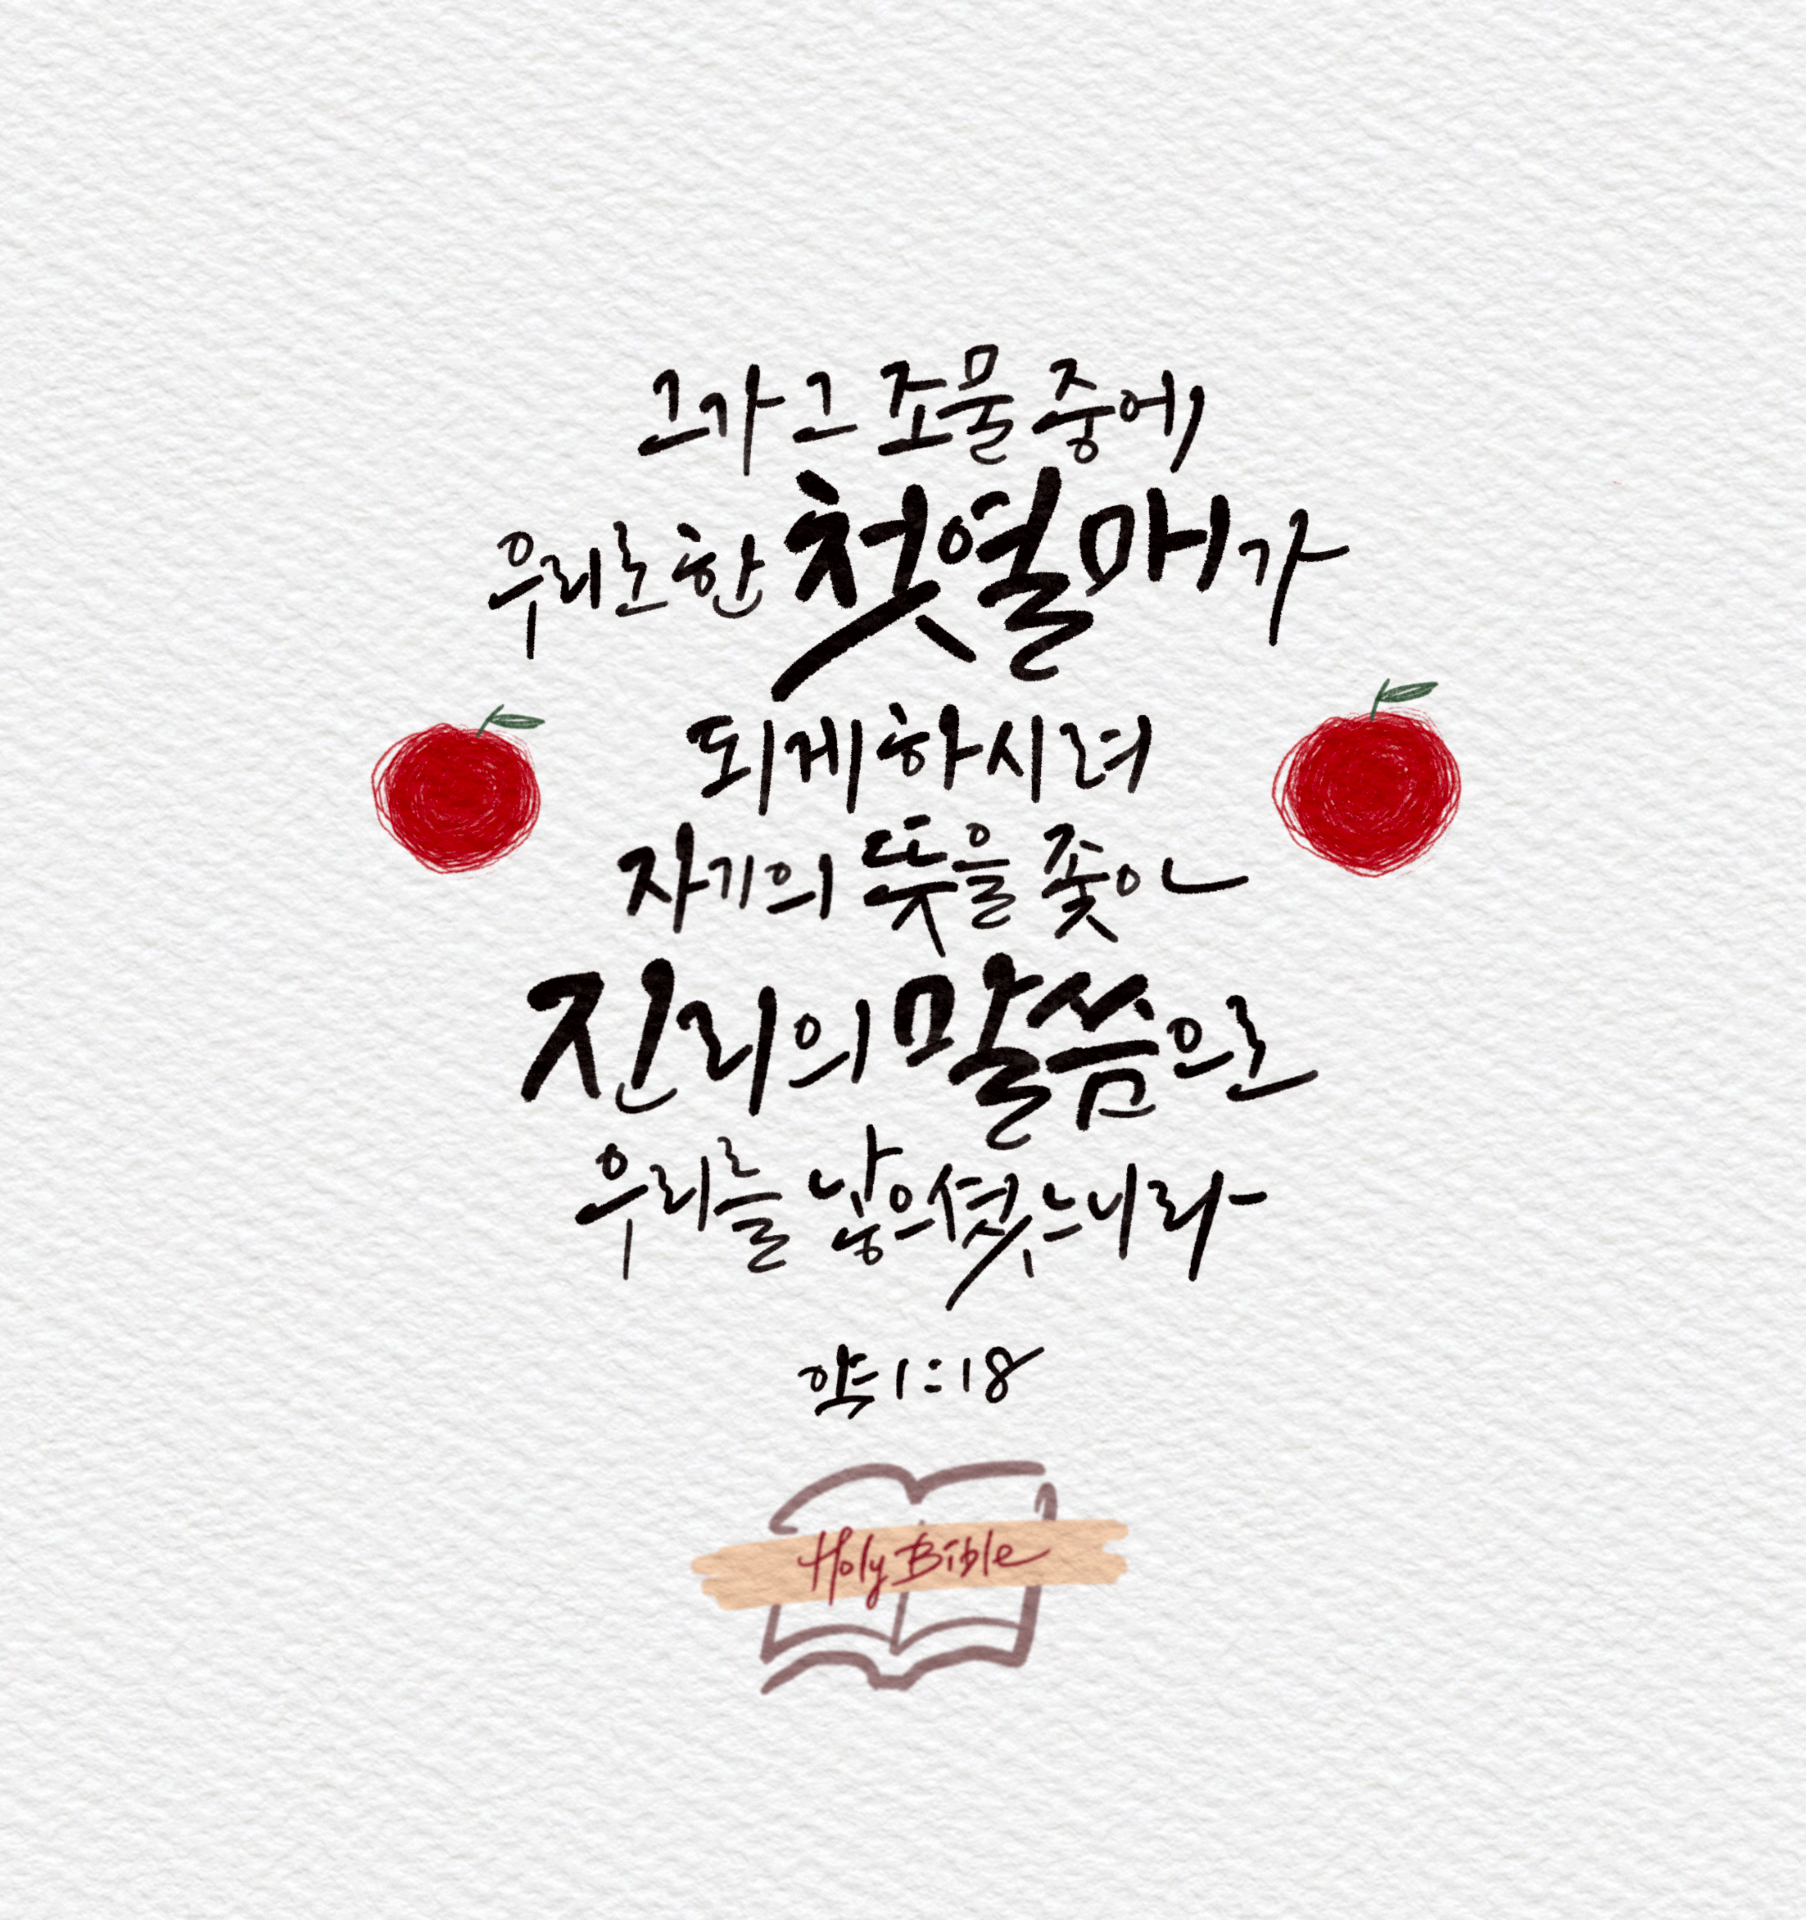 그가 그 조물 중에
우리로 한 첫 열매가
되게 하시려
자기의 뜻을 좇아
진리의 말씀으로
우리를 낳으셨느니라
약 1:18
Holy Bible